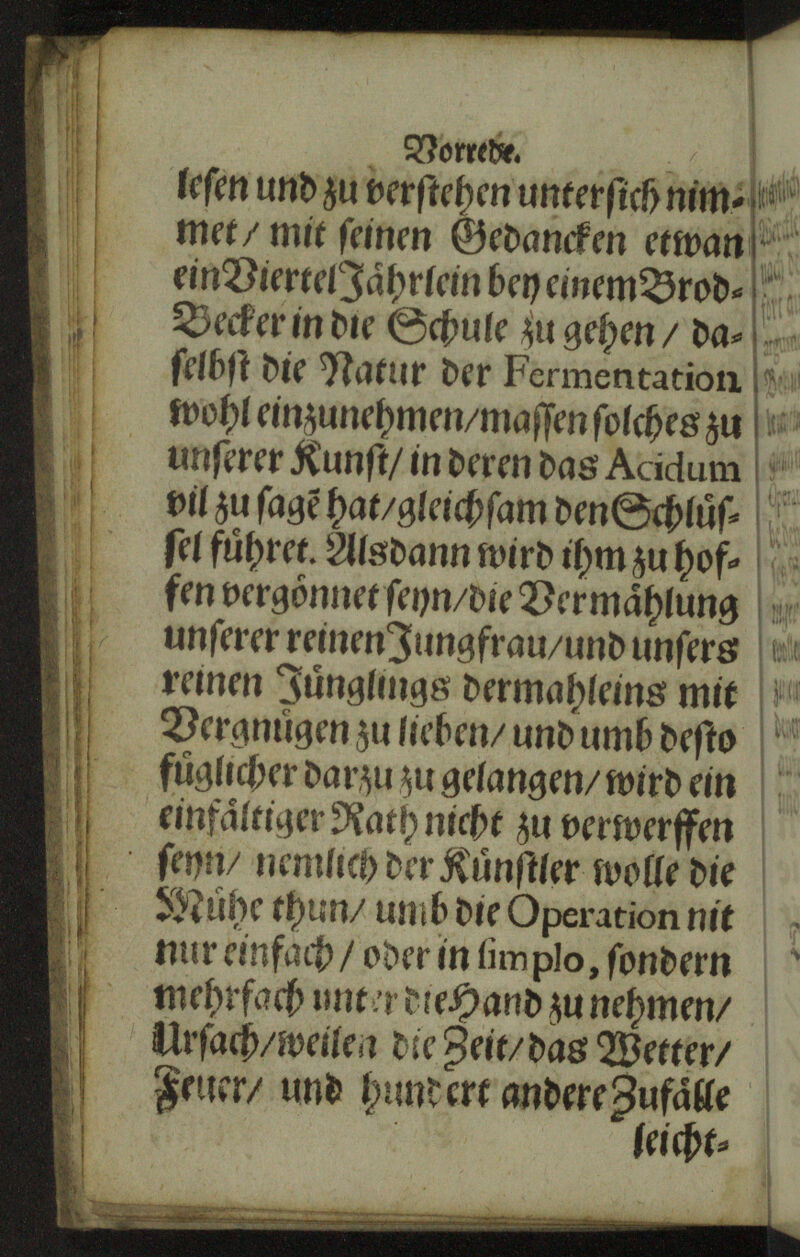 Vorrede.
lesen und zu verstehen unter sich nim-
met / mit seinen Gedancken etwan
ein Viertel Jährlein bey einem Brod-
Becker in die Schule zu gehen / da-
selbst die Natur der Fermentation
wohl einzunehmen/massen solches zu
unserer Kunst/ in deren das Acidum
vil zu sagẽ hat/gleichsam den Schlüs-
sel führet. Alsdann wird ihm zu hof-
fen vergönnet seyn/die Vermählung
unserer reinen Jungfrau/und unsers
reinen Jünglings dermahleins mit
Vergnügen zu lieben/ und umb desto
füglicher darzu zu gelangen/ wird ein
einfältiger Rath nicht zu verwerffen
seyn/ nemlich der Künstler wolle die
Mühe thun/ umb die Operation nit
nur einfach / oder in simplo, sondern
mehrfach unter die Hand zu nehmen/
Ursach/weilen die Zeit/das Wetter/
Feuer/ und hundert andere Zufälle
leicht-